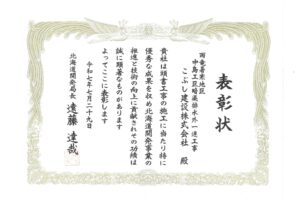 表彰状
雨竜暑寒地区
中島工区暗渠排水外一連工事
こぶし建設株式会社 殿
貴社は頭書工事の施工に当たり特に
優秀な成果を収め北海道開発事業の
推進と技術の向上に貢献されその功績は
誠に顕著なものがあります
よってここに表彰します
令和七年七月二十九日
北海道開発局長 遠藤達哉